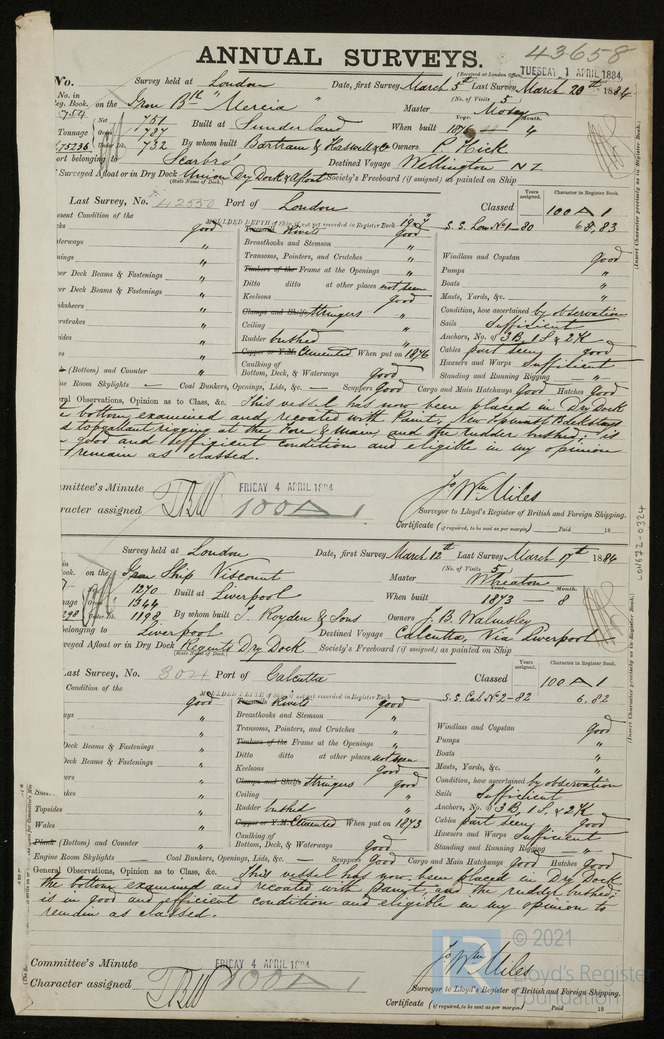 ANNUAL SURVEYS.
43658
(Received at London Office, TUESDAY 1 APRIL 1884
No. Survey held at London Date, first Survey March 5th Last Survey March 20th 1884
No. in Reg. Book. on the Iron Bk "Mercia" Master (No. of Visits 5)
754 Net 751 Built at Sunderland When built 1876 4 Year. Month.
Tonnage Gross 787
75236 Under Dk. 732 By whom built Bartram & Haswell & Co Owners P. Hick
Port belonging to Scarbro' Destined Voyage Wellington NZ
Surveyed Afloat or in Dry Dock Union Dry Dock & Afloat Society's Freeboard (if assigned) as painted on Ship
(State Name of Dock.)
Last Survey, No. 42550 Port of London Classed Years assigned. Character in Register Book. 100 A 1
MOULDED DEPTH of Ship if not yet recorded in Register Book
S.S. Lon No 1-80 6.83
Present Condition of the
Decks good
Treenails Rivets good
Breasthooks and Stemson "
Windlass and Capstan good
Transoms, Pointers, and Crutches "
Pumps "
Upper Deck Beams & Fastenings "
Timbers of the Frame at the Openings "
Boats "
Lower Deck Beams & Fastenings "
Ditto ditto at other places not seen
Masts, Yards, &c. "
Keelsons good
Condition, how ascertained by observation
Clamps and Shelfs Stringers "
Sails Sufficient
Ceiling "
Anchors, No. of 3B, 1S, & 2K
Rudder bushed "
Cables part seen good
Copper or Y.M. Cemented When put on 1876
Hawsers and Warps Sufficient
(Bottom) and Counter "
Caulking of Bottom, Deck, & Waterways Good
Standing and Running Rigging "
Engine Room Skylights — Coal Bunkers, Openings, Lids, &c. — Scuppers Good Cargo and Main Hatchways Good Hatches Good
General Observations, Opinion as to Class, &c. This vessel has now been placed in Dry Dock
bottom examined and recoated with Paint. New Topmast Backstays
& topgallant rigging at the Fore & Main, and the rudder bushed; is
good and efficient condition and eligible in my opinion
remain as classed.
Committee's Minute FRIDAY 4 APRIL 1884
Character assigned 100 A 1
Jo Wm Miles
Surveyor to Lloyd's Register of British and Foreign Shipping.
Certificate (if required, to be sent as per margin) Paid 18
LON672-0324
(Insert Character precisely as in Register Book.)
Survey held at London Date, first Survey March 12th Last Survey March 17th 1884
on the Iron Ship Viscount Master (No. of Visits 5) Wheaton
Net 1270 Built at Liverpool When built 1873 — 8 Year. Month.
Tonnage Gross 1344
Under Dk. 1198 By whom built T. Royden & Sons Owners J. B. Walmsley
belonging to Liverpool Destined Voyage Calcutta, Via Liverpool
Surveyed Afloat or in Dry Dock Regents Dry Dock Society's Freeboard (if assigned) as painted on Ship
(State Name of Dock.)
Last Survey, No. 304 Port of Calcutta Classed Years assigned. Character in Register Book. 100 A 1
MOULDED DEPTH of Ship if not yet recorded in Register Book
S.S. Cal No 2-82 6.82
Condition of the
good
Treenails Rivets good
Breasthooks and Stemson "
Windlass and Capstan good
Transoms, Pointers, and Crutches "
Pumps "
Deck Beams & Fastenings "
Timbers of the Frame at the Openings "
Boats "
Deck Beams & Fastenings "
Ditto ditto at other places not seen
Masts, Yards, &c. "
Keelsons Good
Condition, how ascertained by observation
Clamps and Shelfs Stringers good
Sails Sufficient
Topsides "
Ceiling "
Anchors, No. of 3B, 1S, & 2K
Wales "
Rudder bushed "
Cables part seen Good
Copper or Y.M. Cemented When put on 1873
Hawsers and Warps Sufficient
Plank (Bottom) and Counter "
Caulking of Bottom, Deck, & Waterways Good
Standing and Running Rigging "
Engine Room Skylights — Coal Bunkers, Openings, Lids, &c. — Scuppers Good Cargo and Main Hatchways Good Hatches Good
General Observations, Opinion as to Class, &c. This vessel has now been placed in Dry Dock
the bottom examined and recoated with paint, and the rudder bushed;
is in good and efficient condition and eligible in my opinion to
remain as classed.
Committee's Minute FRIDAY 4 APRIL 1884
Character assigned 100 A 1
Jo Wm Miles
Surveyor to Lloyd's Register of British and Foreign Shipping.
Certificate (if required, to be sent as per margin) Paid 18
(Insert Character precisely as in Register Book.)
© 2021
Lloyd's Register
Foundation